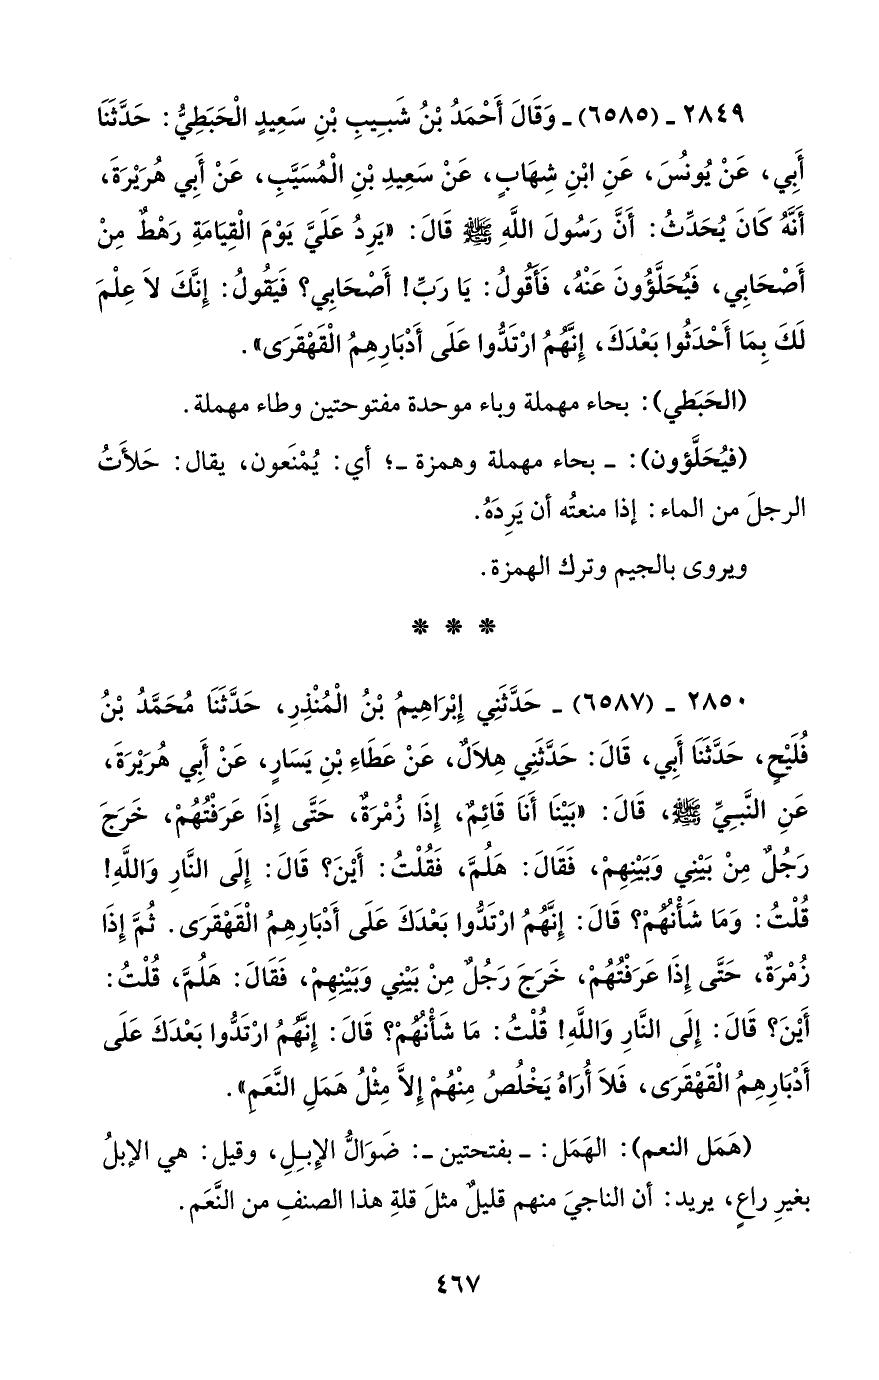 ٢٨٤٩ ـ (٦٥٨٥) ـ وَقَالَ أَحْمَدُ بْنُ شَبِيبِ بْنِ سَعِيدٍ الْحَبَطِيُّ: حَدَّثَنَا
أَبِي، عَنْ يُونُسَ، عَنِ ابْنِ شِهَابٍ، عَنْ سَعِيدِ بْنِ الْمُسَيَّبِ، عَنْ أَبِي هُرَيْرَةَ،
أَنَّهُ كَانَ يُحَدِّثُ: أَنَّ رَسُولَ اللَّهِ ﷺ قَالَ: «يَرِدُ عَلَيَّ يَوْمَ الْقِيَامَةِ رَهْطٌ مِنْ
أَصْحَابِي، فَيُحَلَّؤُونَ عَنْهُ، فَأَقُولُ: يَا رَبِّ! أَصْحَابِي؟ فَيَقُولُ: إِنَّكَ لاَ عِلْمَ
لَكَ بِمَا أَحْدَثُوا بَعْدَكَ، إِنَّهُمُ ارْتَدُّوا عَلَى أَدْبَارِهِمُ الْقَهْقَرَى».
(الحَبَطي): بحاء مهملة وباء موحدة مفتوحتين وطاء مهملة.
(فيُحَلَّؤون): ـ بحاء مهملة وهمزة ـ؛ أي: يُمْنَعون، يقال: حَلأَتُ
الرجلَ من الماء: إذا منعتُه أن يَرِدَهُ.
ويروى بالجيم وترك الهمزة.
* * *
٢٨٥٠ ـ (٦٥٨٧) ـ حَدَّثَنِي إِبْرَاهِيمُ بْنُ الْمُنْذِرِ، حَدَّثَنَا مُحَمَّدُ بْنُ
فُلَيْحٍ، حَدَّثَنَا أَبِي، قَالَ: حَدَّثَنِي هِلاَلٌ، عَنْ عَطَاءِ بْنِ يَسَارٍ، عَنْ أَبِي هُرَيْرَةَ،
عَنِ النَّبِيِّ ﷺ، قَالَ: «بَيْنَا أَنَا قَائِمٌ، إِذَا زُمْرَةٌ، حَتَّى إِذَا عَرَفْتُهُمْ، خَرَجَ
رَجُلٌ مِنْ بَيْنِي وَبَيْنِهِمْ، فَقَالَ: هَلُمَّ، فَقُلْتُ: أَيْنَ؟ قَالَ: إِلَى النَّارِ وَاللَّهِ!
قُلْتُ: وَمَا شَأْنُهُمْ؟ قَالَ: إِنَّهُمُ ارْتَدُّوا بَعْدَكَ عَلَى أَدْبَارِهِمُ الْقَهْقَرَى. ثُمَّ إِذَا
زُمْرَةٌ، حَتَّى إِذَا عَرَفْتُهُمْ، خَرَجَ رَجُلٌ مِنْ بَيْنِي وَبَيْنِهِمْ، فَقَالَ: هَلُمَّ، قُلْتُ:
أَيْنَ؟ قَالَ: إِلَى النَّارِ وَاللَّهِ! قُلْتُ: مَا شَأْنُهُمْ؟ قَالَ: إِنَّهُمُ ارْتَدُّوا بَعْدَكَ عَلَى
أَدْبَارِهِمُ الْقَهْقَرَى، فَلاَ أُرَاهُ يَخْلُصُ مِنْهُمْ إِلاَّ مِثْلُ هَمَلِ النَّعَمِ».
(هَمَل النعم): الهَمَل: ـ بفتحتين ـ: ضَوَالُّ الإِبِلِ، وقيل: هي الإبلُ
بغيرِ راعٍ، يريد: أن الناجيَ منهم قليلٌ مثلَ قلةِ هذا الصنفِ من النَّعَم.
٤٦٧